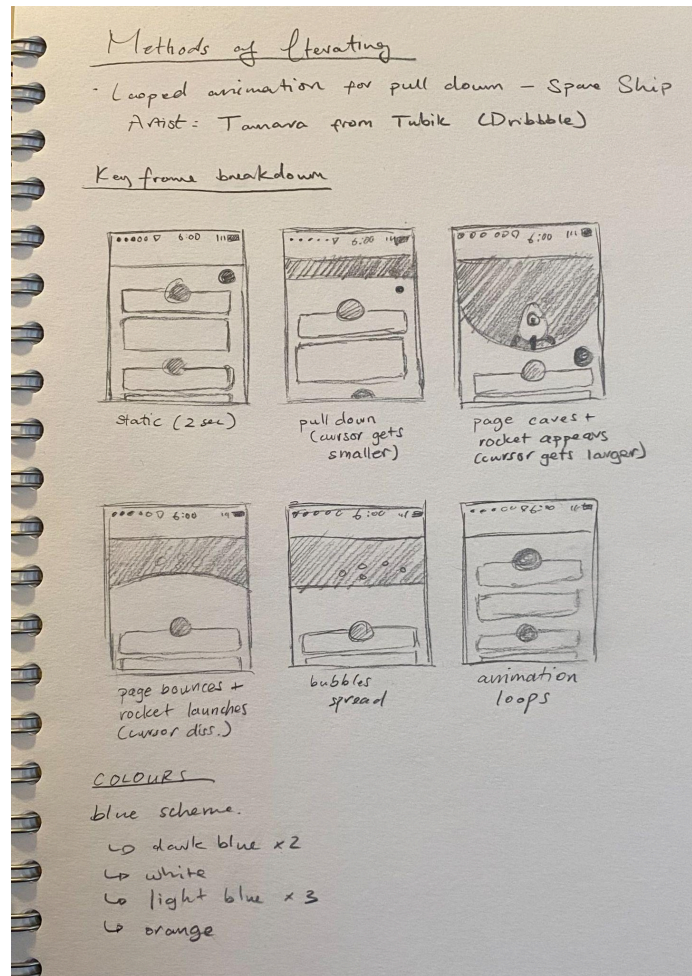 Methods of Iterating
· Looped animation for pull down - Space Ship
Artist: Tamara from Tubik (Dribbble)
Key frame breakdown
6:00
6:00
6:00
static (2 sec)
pull down
(cursor gets
smaller)
page caves +
rocket appears
(cursor gets larger)
6:00
6:00
6:00
page bounces +
rocket launches
(cursor diss.)
bubbles
spread
animation
loops
COLOURS
blue scheme.
↳ dark blue x2
↳ white
↳ light blue x 3
↳ orange